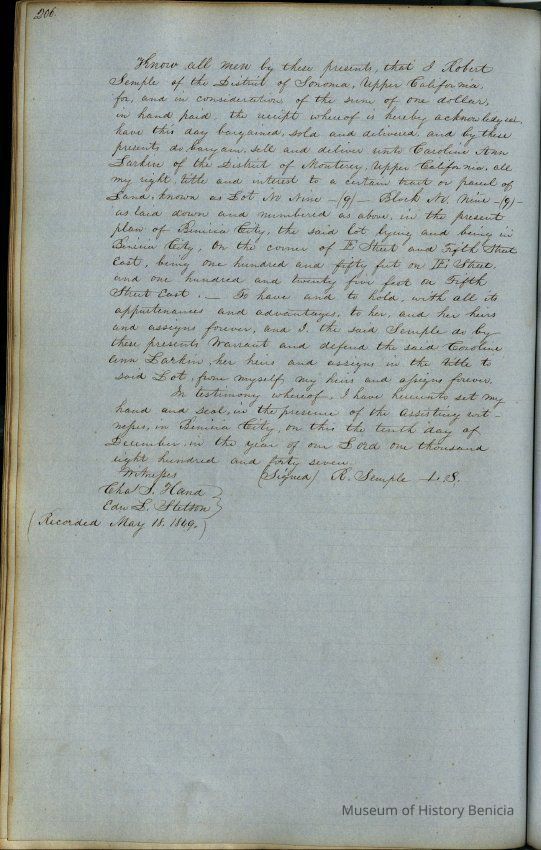 206
Know all men by these presents, that I Robert
Semple of the District of Sonoma, Upper California,
for, and in consideration of the sum of one dollar,
in hand paid, the receipt whereof is hereby acknowledged,
have this day bargained, sold and delivered, and by these
presents do bargain, sell and deliver unto Caroline Ann
Larkin of the District of Monterey, Upper California, all
my right, title and interest to a certain tract or parcel of
Land, known as Lot No Nine -(9)- Block No. Nine -(9)-
as laid down and numbered as above, in the present
plan of Benicia City, the said lot lying and being in
Benicia City, on the corner of E Street and Fifth Street
East, being one hundred and fifty feet on E Street,
and one hundred and twenty five feet on Fifth
Street East. — To have and to hold, with all its
appurtenances and advantages, to her, and her heirs
and assigns forever, and I, the said Semple do by
these presents Warrant and defend the said Caroline
Ann Larkin, her heirs and assigns in the title to
said Lot, from myself, my heirs and assigns forever.
In testimony whereof, I have hereunto set my
hand and seal, in the presence of the assisting wit-
ness, in Benicia City, on this the tenth day of
December, in the year of our Lord one thousand
eight hundred and forty seven.
Witness (Signed) R. Semple L.S.
Chas. S. Hand
Edw L. Stetson
(Recorded May 18. 1849.)
Museum of History Benicia